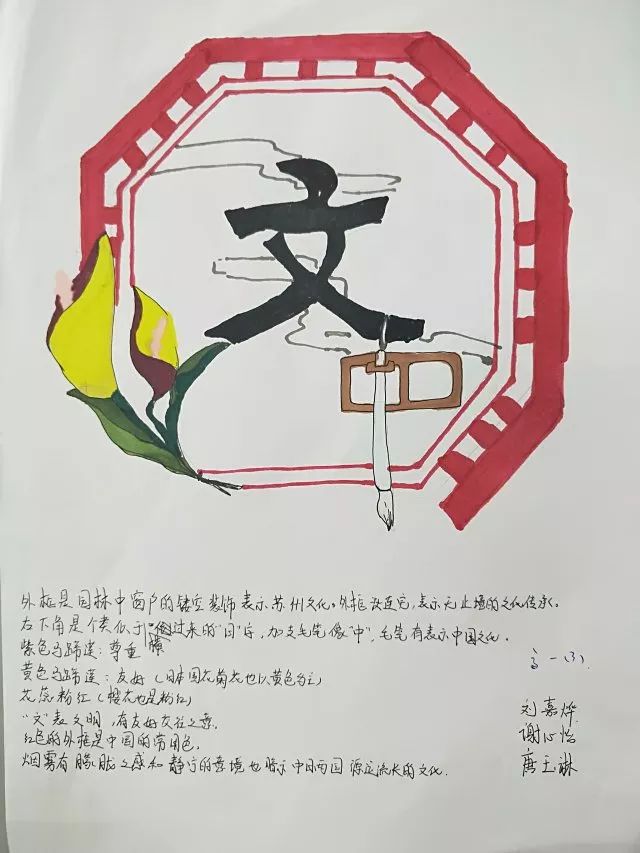 文
外框是园林中窗户的镂空装饰表示苏州文化。外框没连完,表示无止境的文化传承。
右下角是个类似于横过来的"日"字,加支毛笔像"中",毛笔有表示中国文化。
紫色马蹄莲:尊重
黄色马蹄莲:友好(日本国花菊花也以黄色为主)
花蕊粉红(樱花也是粉红)
"文"表文明,有友好友往之意。
红色的外框是中国的常用色。
烟雾有朦胧之感和静谧的意境也暗示中日两国源远流长的文化.
高一(3).
刘嘉烨
谢心怡
唐玉琳